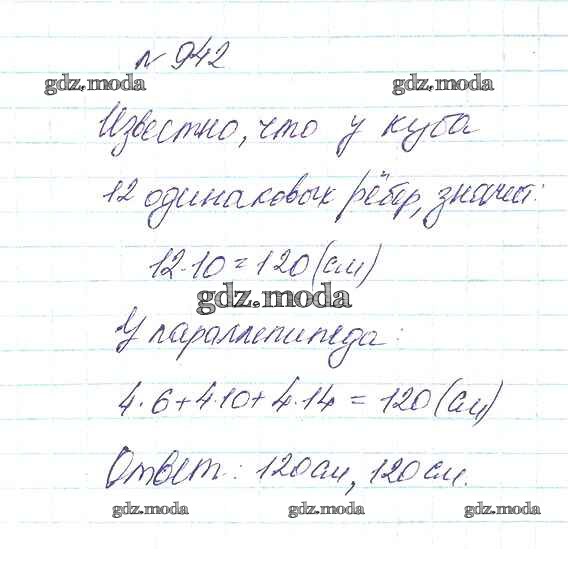 № 942
gdz.moda gdz.moda
Известно, что у куба
12 одинаковых рёбер, значит:
12·10=120(см)
gdz.moda
У параллепипеда:
4·6+4·10+4·14=120(см)
Ответ: 120см, 120см.
gdz.moda gdz.moda gdz.moda